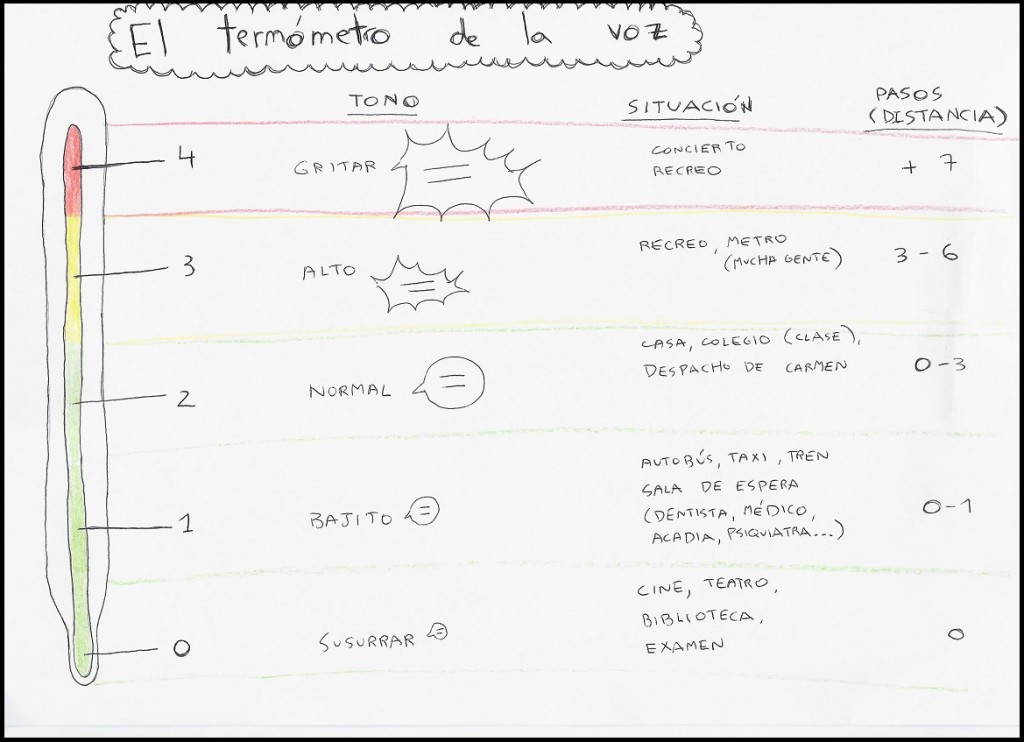 El termómetro de la voz
TONO
SITUACIÓN
PASOS
(DISTANCIA)
4
GRITAR
CONCIERTO
RECREO
+ 7
3
ALTO
RECREO, METRO
(MUCHA GENTE)
3 - 6
2
NORMAL
CASA, COLEGIO (CLASE),
DESPACHO DE CARMEN
0-3
1
BAJITO
AUTOBÚS, TAXI, TREN
SALA DE ESPERA
(DENTISTA, MÉDICO,
ACADIA, PSIQUIATRA...)
0-1
0
SUSURRAR
CINE, TEATRO,
BIBLIOTECA,
EXAMEN
0